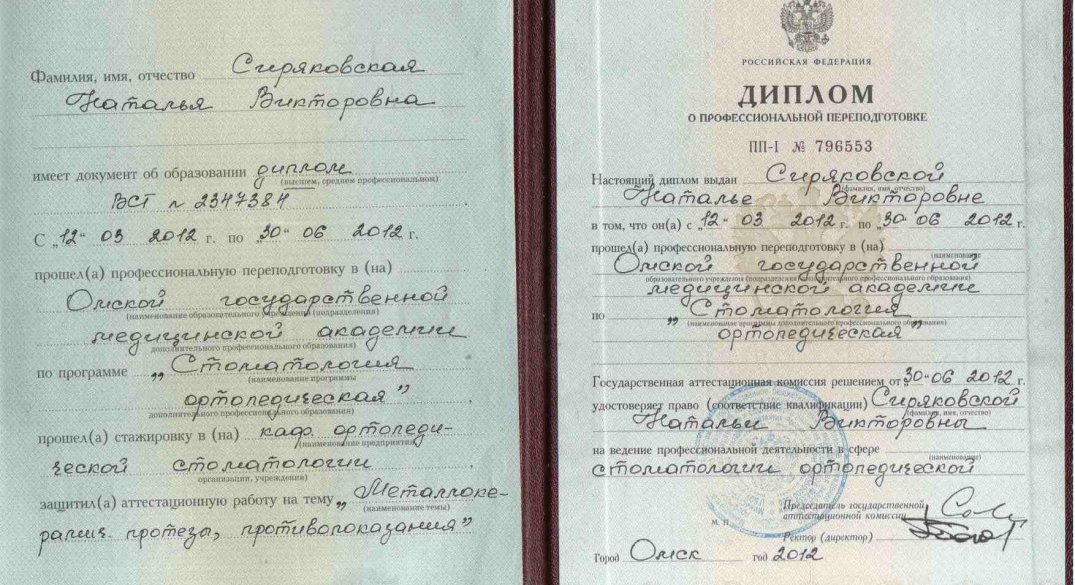 Фамилия, имя, отчество Сиряковская
Наталья Викторовна
имеет документ об образовании диплом
(высшем, среднем профессиональном)
ВСТ № 2347384
С „12“ 03 2012 г. по „30“ 06 2012 г.
прошел(а) профессиональную переподготовку в (на)
Омской государственной
(наименование образовательного учреждения (подразделения)
медицинской академии
дополнительного профессионального образования)
по программе „Стоматология
(наименование программы
ортопедическая”
дополнительного профессионального образования)
прошел(а) стажировку в (на) каф. ортопеди-
(наименование предприятия,
ческой стоматологии
организации, учреждения)
защитил(а) аттестационную работу на тему „Металлоке-
(наименование темы)
рамич. протезы, противопоказания”
РОССИЙСКАЯ ФЕДЕРАЦИЯ
ДИПЛОМ
О ПРОФЕССИОНАЛЬНОЙ ПЕРЕПОДГОТОВКЕ
ПП-I № 796553
Настоящий диплом выдан Сиряковской
(фамилия, имя, отчество)
Наталье Викторовне
в том, что он(а) с „12“ 03 2012 г. по „30“ 06 2012 г.
прошел(а) профессиональную переподготовку в (на)
(наименование
Омской государственной
образовательного учреждения (подразделения) дополнительного профессионального образования)
медицинской академии
по „Стоматология
(наименование программы дополнительного профессионального образования)
ортопедическая”
Государственная аттестационная комиссия решением от „30“ 06 2012 г.
удостоверяет право (соответствие квалификации) Сиряковской
(фамилия, имя, отчество)
Натальи Викторовны
на ведение профессиональной деятельности в сфере
(наименование)
стоматологии ортопедической
Председатель государственной
аттестационной комиссии
М. П.
Ректор (директор)
Город Омск год 2012